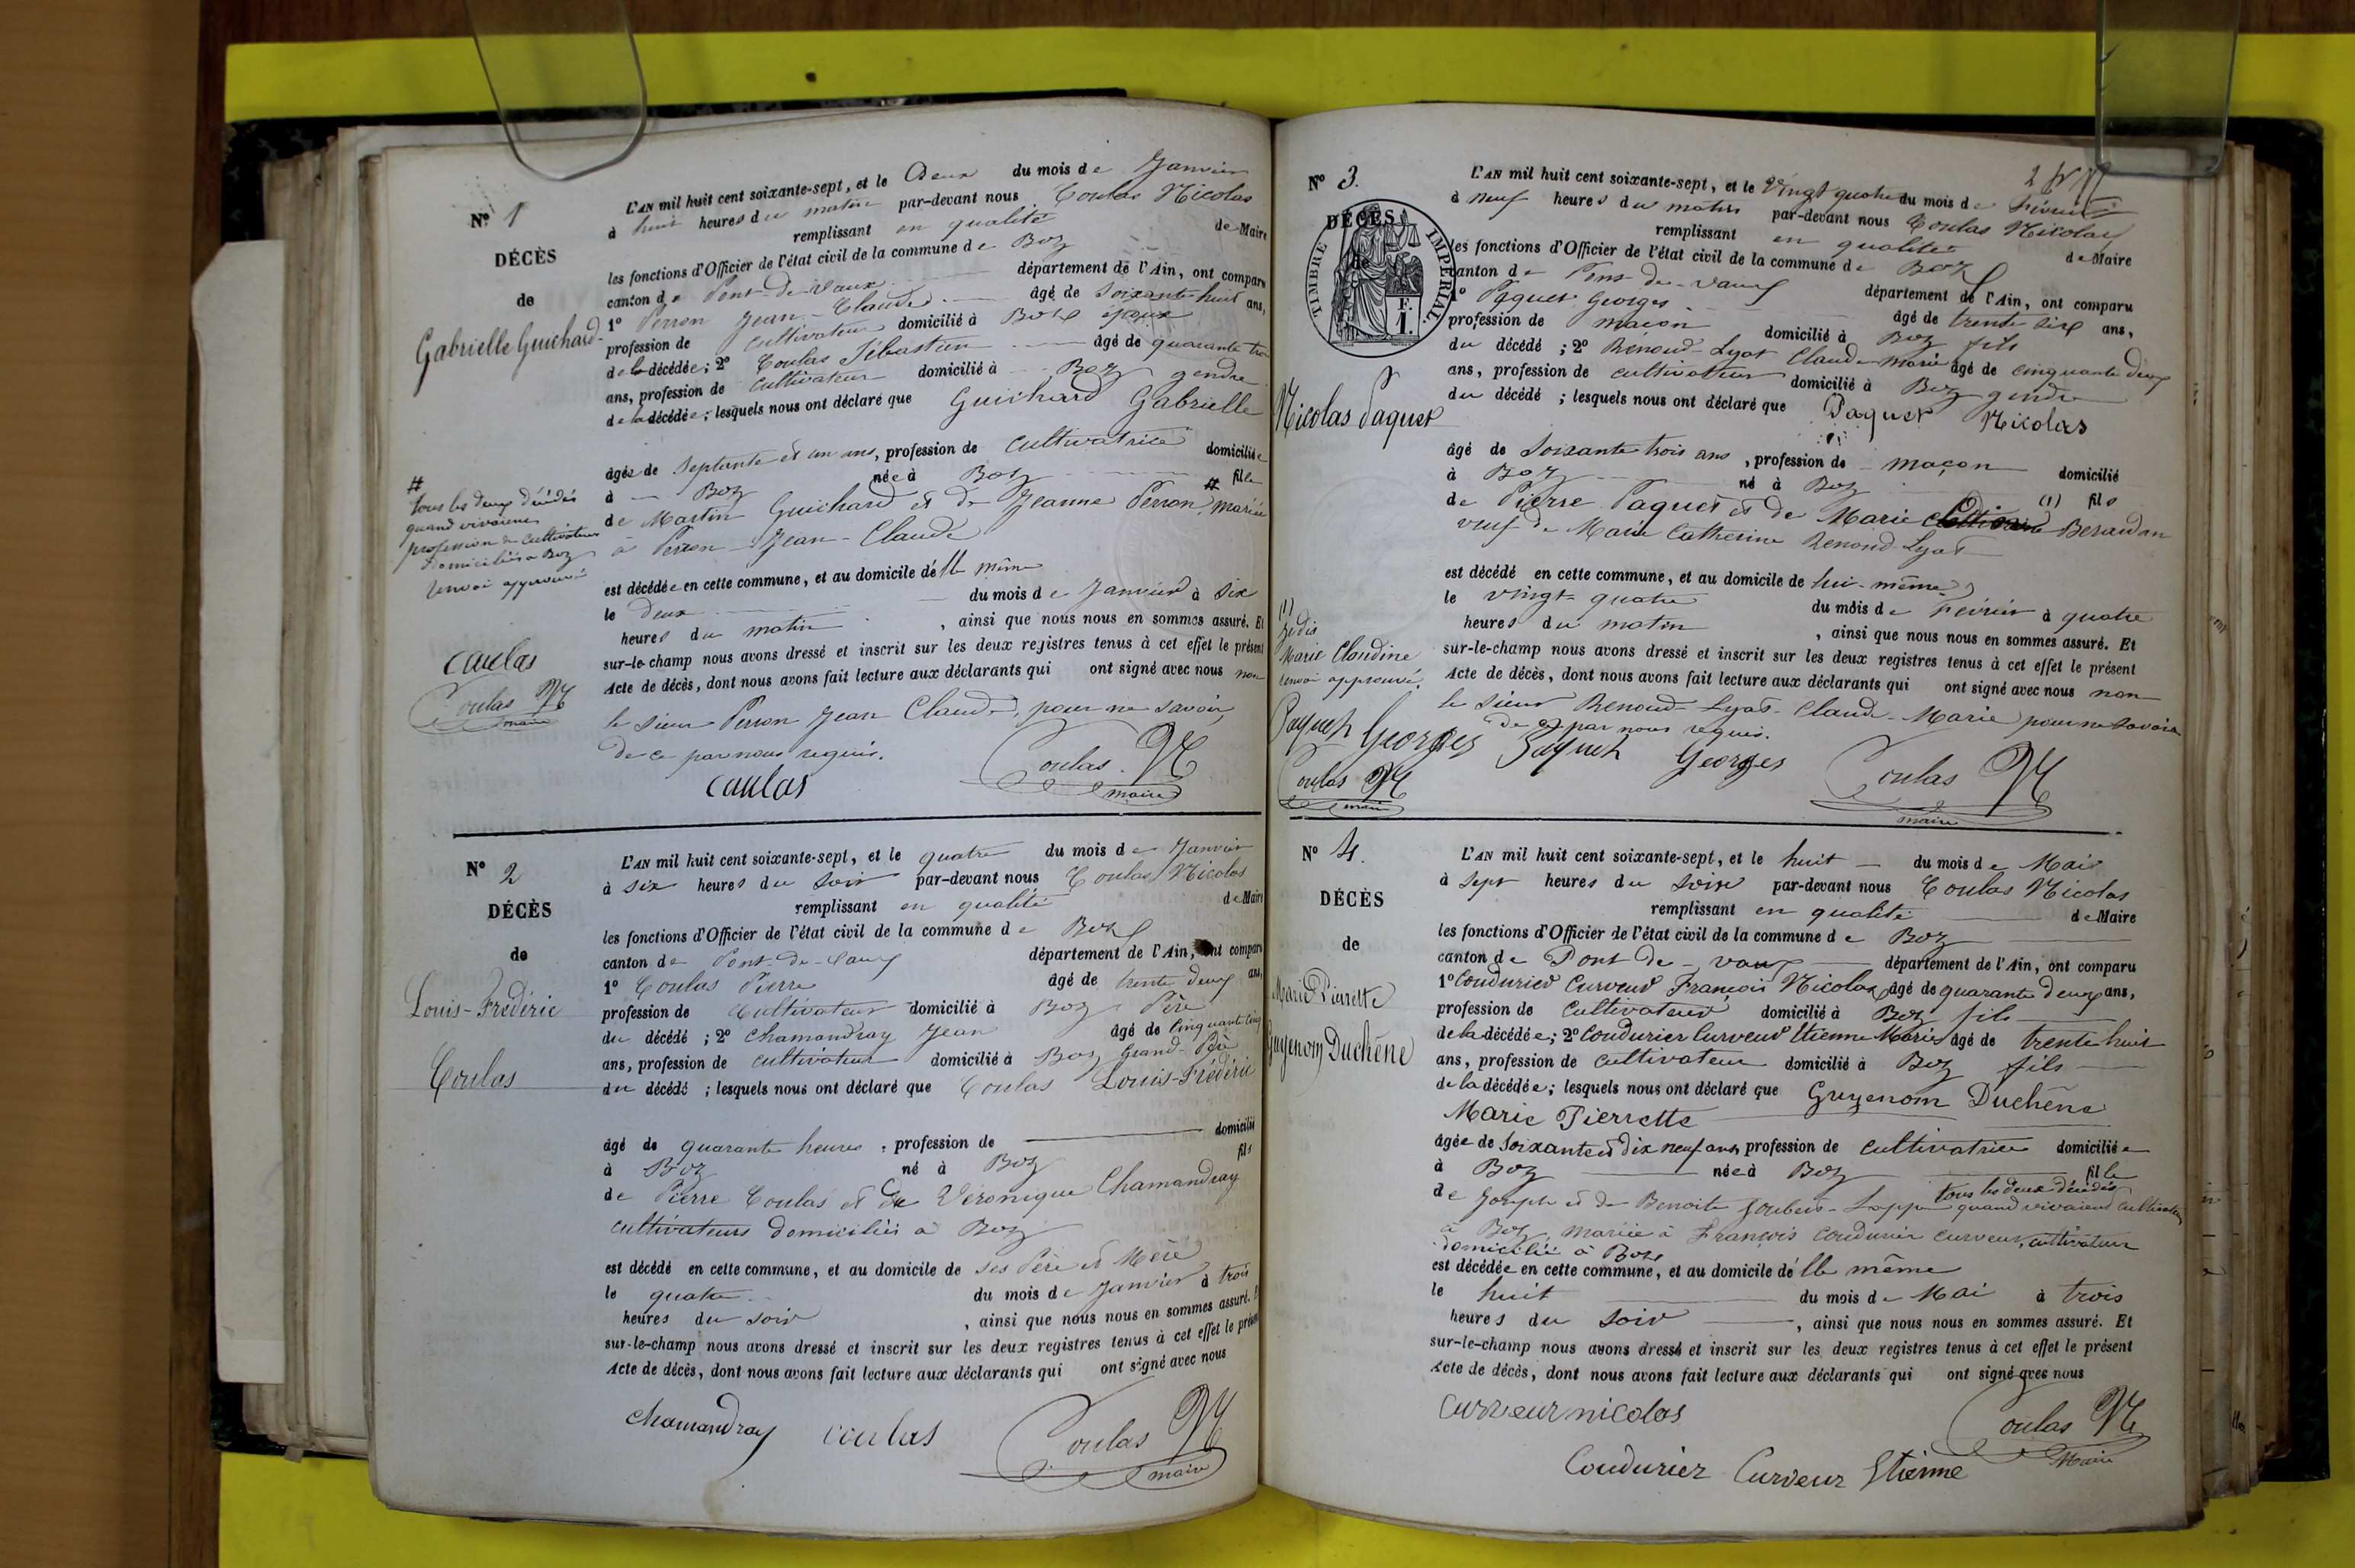 N° 1
DÉCÈS
de
Gabrielle Guichard
L'AN mil huit cent soixante-sept, et le Deux du mois de Janvier
à huit heures du matin par-devant nous Coulas Nicolas
remplissant en qualité de Maire
les fonctions d'Officier de l'état civil de la commune de Boz
canton de Pont-de-Vaux département de l'Ain, ont comparu
1° Perron Jean-Claude âgé de soixante huit ans,
profession de cultivateur domicilié à Boz époux
de la décédée; 2° Coulas Sébastien âgé de quarante
ans, profession de cultivateur domicilié à Boz gendre
de la décédée; lesquels nous ont déclaré que Guichard Gabrielle
âgée de septante et un ans, profession de cultivatrice domiciliée
à Boz née à Boz fille
de Martin Guichard et de Jeanne Perron # mariée
à Perron Jean-Claude
est décédée en cette commune, et au domicile d'elle même
le deux du mois de Janvier à six
heures du matin, ainsi que nous nous en sommes assuré. Et
sur-le-champ nous avons dressé et inscrit sur les deux registres tenus à cet effet le présent
Acte de décès, dont nous avons fait lecture aux déclarants qui ont signé avec nous non
le sieur Perron Jean Claude, pour ne savoir,
de ce par nous requis.
caulas Coulas N
maire
#
tous les deux décédés
quand vivaient
profession de cultivateurs
domiciliés à Boz
renvoi approuvé
caulas
Coulas N
maire
N° 2
DÉCÈS
de
Louis-Frédéric
Coulas
L'AN mil huit cent soixante-sept, et le quatre du mois de Janvier
à six heures du soir par-devant nous Coulas Nicolas
remplissant en qualité de Maire
les fonctions d'Officier de l'état civil de la commune de Boz
canton de Pont-de-Vaux département de l'Ain, ont comparu
1° Coulas Pierre âgé de trente deux ans,
profession de cultivateur domicilié à Boz Père
du décédé; 2° Chamandray Jean âgé de cinquante cinq
ans, profession de cultivateur domicilié à Boz Grand-Père
du décédé; lesquels nous ont déclaré que Coulas Louis-Frédéric
âgé de quarante heures, profession de domicilié
à Boz né à Boz fils
de Pierre Coulas et de Véronique Chamandray
cultivateurs domiciliés à Boz
est décédé en cette commune, et au domicile de ses Père et Mère
le quatre du mois de Janvier à trois
heures du soir, ainsi que nous nous en sommes assuré. Et
sur-le-champ nous avons dressé et inscrit sur les deux registres tenus à cet effet le présent
Acte de décès, dont nous avons fait lecture aux déclarants qui ont signé avec nous
chamandray coulas Coulas N
maire
N° 3.
DÉCÈS
de
TIMBRE IMPÉRIAL
Nicolas Paquet
L'AN mil huit cent soixante-sept, et le vingt quatre du mois de Février
à neuf heures du matin par-devant nous Coulas Nicolas
remplissant en qualité de Maire
les fonctions d'Officier de l'état civil de la commune de Boz
canton de Pont-de-Vaux département de l'Ain, ont comparu
1° Paquet Georges âgé de trente six ans,
profession de maçon domicilié à Boz fils
du décédé; 2° Renoud-Lyat Claude-Marie âgé de cinquante deux
ans, profession de cultivateur domicilié à Boz gendre
du décédé; lesquels nous ont déclaré que Paquet Nicolas
âgé de soixante trois ans, profession de maçon domicilié
à Boz né à Boz fils
de Pierre Paquet et de Marie (1) Beraudan
veuf de Marie Catherine Renoud-Lyat
est décédé en cette commune, et au domicile de lui-même
le vingt-quatre du mois de Février à quatre
heures du matin, ainsi que nous nous en sommes assuré. Et
sur-le-champ nous avons dressé et inscrit sur les deux registres tenus à cet effet le présent
Acte de décès, dont nous avons fait lecture aux déclarants qui ont signé avec nous non
le sieur Renoud-Lyat-Claude-Marie pour ne savoir
de ce par nous requis.
(1)
Je dis
Marie Claudine
renvoi approuvé.
Paqueh Georges
Coulas N
maire
Paqueh Georges Coulas N
maire
N° 4.
DÉCÈS
de
Marie Pierrette
Guyenom Duchêne
L'AN mil huit cent soixante-sept, et le huit du mois de Mai
à sept heures du soir par-devant nous Coulas Nicolas
remplissant en qualité de Maire
les fonctions d'Officier de l'état civil de la commune de Boz
canton de Pont-de-Vaux département de l'Ain, ont comparu
1° Coudurier Curveur François Nicolas, âgé de quarante deux ans,
profession de cultivateur domicilié à Boz fils
de la décédée; 2° Coudurier Curveur Etienne Marie âgé de trente huit
ans, profession de cultivateur domicilié à Boz fils
de la décédée; lesquels nous ont déclaré que Guyenom Duchêne
Marie Pierrette
âgée de soixante et dix neuf ans, profession de cultivatrice domiciliée
à Boz née à Boz fille
de Joseph et de Benoite Joubert- tous les deux décédés quand vivaient cultivateurs
à Boz, mariée à François Coudurier curveur, cultivateur
domicilié à Boz
est décédée en cette commune, et au domicile d'elle même
le huit du mois de Mai à trois
heures du soir, ainsi que nous nous en sommes assuré. Et
sur-le-champ nous avons dressé et inscrit sur les deux registres tenus à cet effet le présent
Acte de décès, dont nous avons fait lecture aux déclarants qui ont signé avec nous
curveur nicolas Coulas N
Maire
Coudurier Curveur Etienne